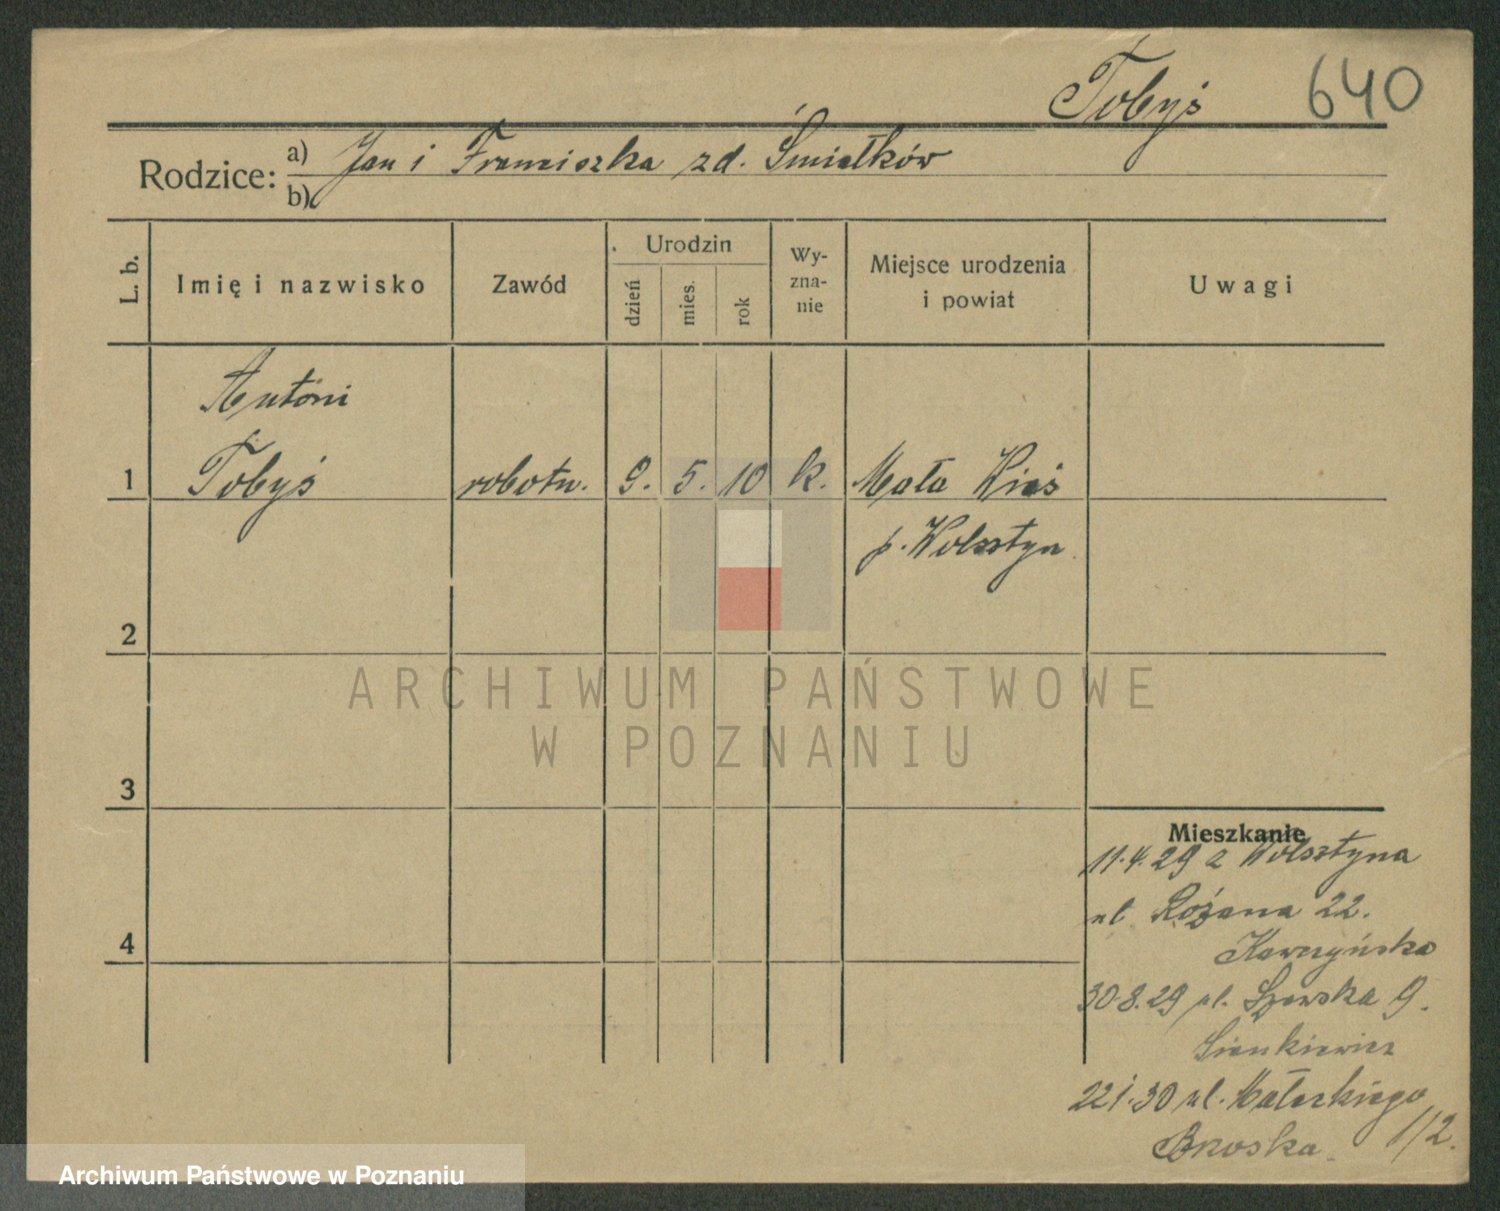 Tobyś 640
Rodzice: a) Jan i Franciszka zd. Śmiałków
b)
L. b. Imię i nazwisko Zawód Urodzin dzień mies. rok Wy-zna-nie Miejsce urodzenia i powiat Uwagi
Antoni
1 Tobyś robotn. 9. 5. 10 k. Mała Wieś
p. Wolsztyn
2
ARCHIWUM PAŃSTWOWE
W POZNANIU
3
Mieszkanie
11.4.29 z Wolsztyna
ul. Różana 22.
4 Kawczyńska
30.8.29 ul. 9.
Sienkiewicz
22 1.30 ul. Małeckiego
Brzoska. 1/2.
Archiwum Państwowe w Poznaniu